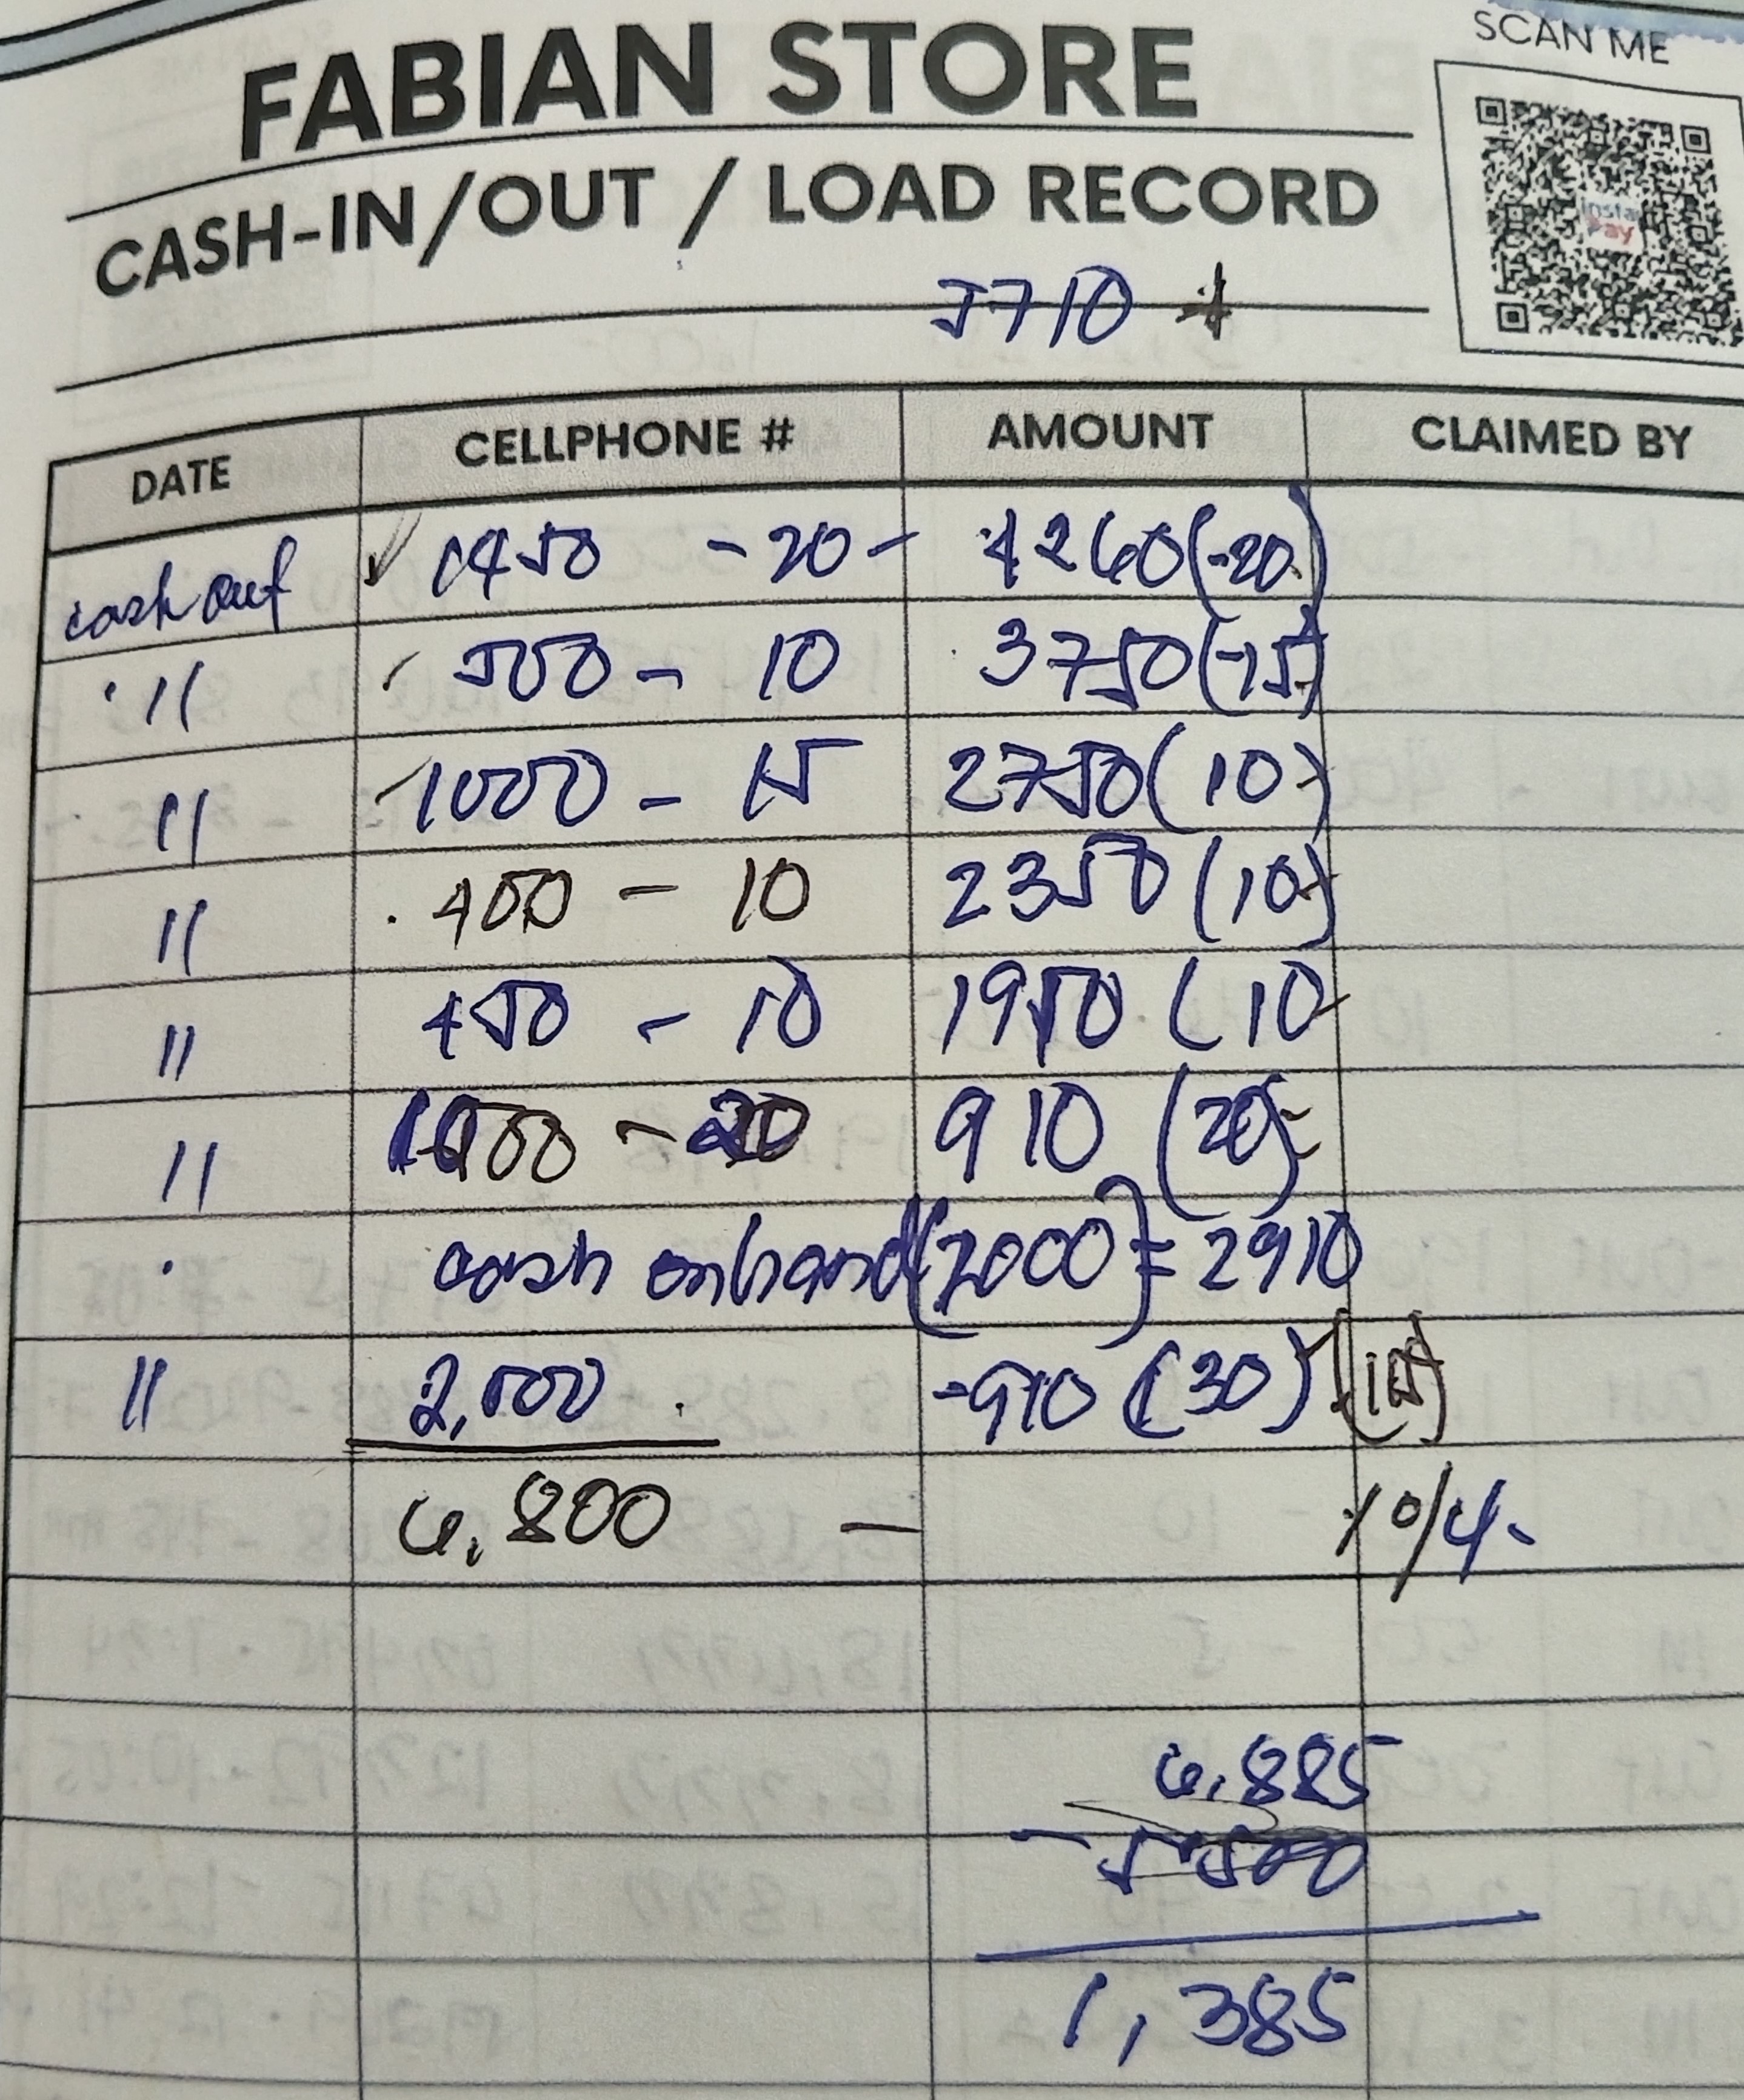 SCAN ME
FABIAN STORE
CASH-IN/OUT / LOAD RECORD
Insta Pay
5710
DATE CELLPHONE # AMOUNT CLAIMED BY
cash out 1450 - 20 - 4260 (-20)
" 500 - 10 3750 (-15)
" 1000 - 15 2750 (10)
" 400 - 10 2350 (10)
" 450 - 10 1950 (10
" 1000 - 20 910 (20)
cash onhand (2000) = 2910
" 2,000 -910 (30) (15)
6,800 -
6,885
- 5500
1,385